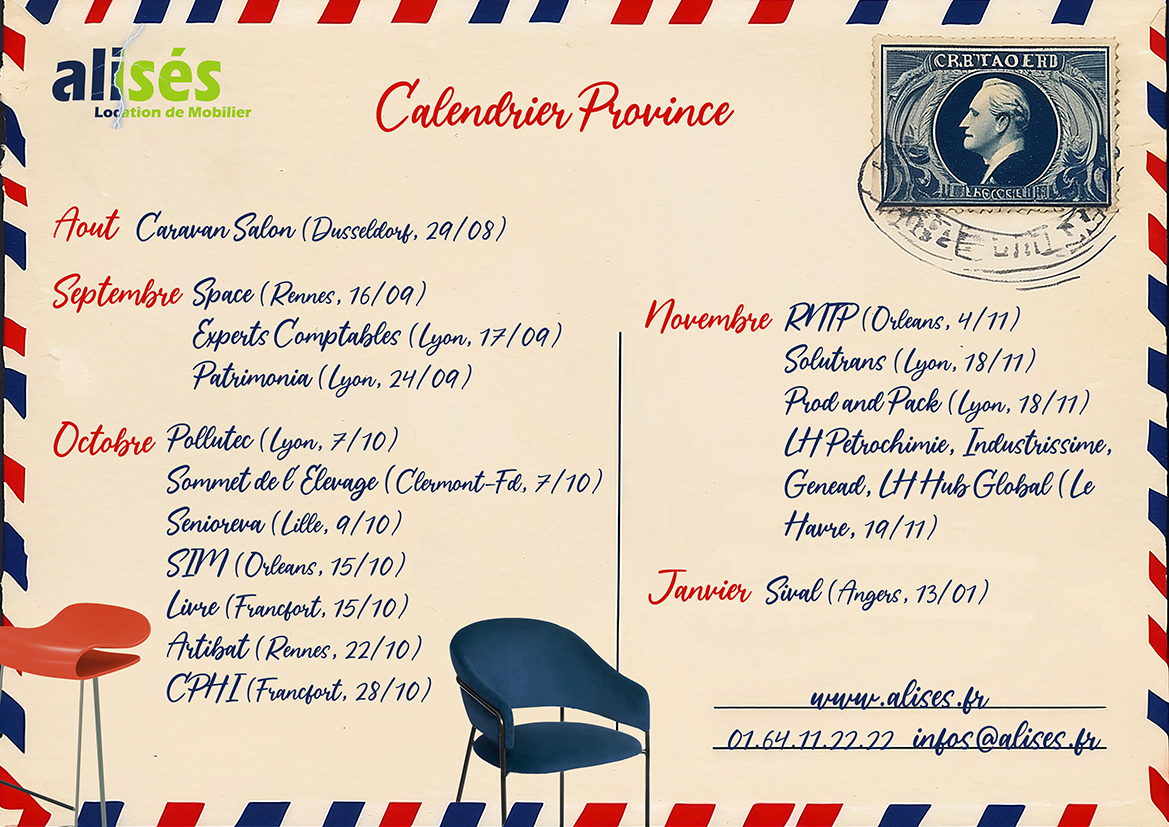 alisés
Location de Mobilier
Calendrier Province
CRBTAOERD
Aout Caravan Salon (Dusseldorf, 29/08)
Septembre Space (Rennes, 16/09)
Experts Comptables (Lyon, 17/09)
Patrimonia (Lyon, 24/09)
Octobre Pollutec (Lyon, 7/10)
Sommet de l'Elevage (Clermont-Fd, 7/10)
Senioreva (Lille, 9/10)
SIM (Orleans, 15/10)
Livre (Francfort, 15/10)
Artibat (Rennes, 22/10)
CPHI (Francfort, 28/10)
Novembre RNTP (Orleans, 4/11)
Solutrans (Lyon, 18/11)
Prod and Pack (Lyon, 18/11)
LH Petrochimie, Industrissime,
Genead, LH Hub Global (Le
Havre, 19/11)
Janvier Sival (Angers, 13/01)
www.alises.fr
01.64.11.22.22 infos@alises.fr